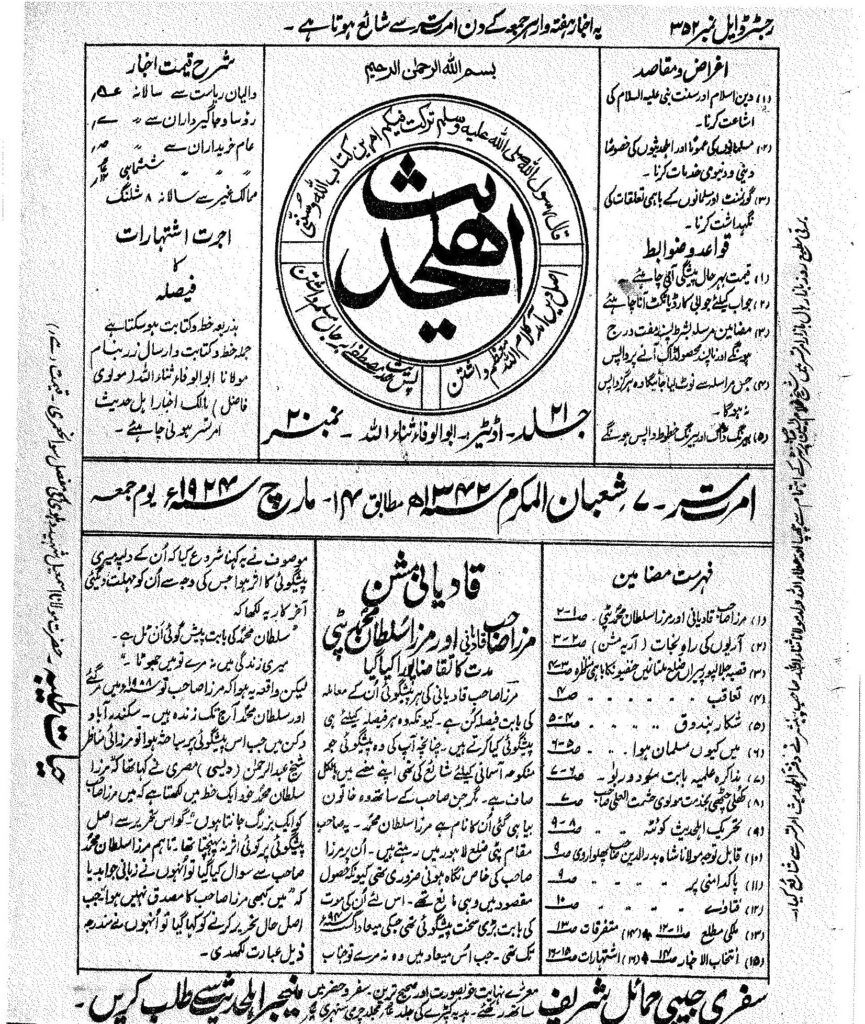 رجسٹرڈ ایل نمبر ۳۵۲
یہ اخبار ہفتہ وار ہر جمعہ کے دن امرتسر سے شائع ہوتا ہے۔
اغراض و مقاصد
(۱) دین اسلام اور سنت نبی علیہ السلام کی
اشاعت کرنا۔
(۲) مسلمانوں کی عموماً اور اہلحدیثوں کی خصوصاً
دینی و دنیوی خدمات کرنا۔
(۳) گورنمنٹ اور مسلمانوں کے باہمی تعلقات کی
نگہداشت کرنا۔
قواعد و ضوابط
(۱) قیمت بہرحال پیشگی آنی چاہئے
(۲) جواب کیلئے جوابی کارڈ یا ٹکٹ آنا چاہئے
(۳) مضامین مرسلہ بشرط پسند مفت درج
ہونگے اور ناپسند محصولڈاک آنے پر واپس
(۴) جس مراسلہ سے نوٹ لیا جائیگا وہ ہرگز واپس
نہ ہوگا۔
(۵) بیرنگ ڈاک اور بیرنگ خطوط واپس ہونگے
بسم اللہ الرحمٰن الرحیم
قال رسول اللہ صلی اللہ علیہ وسلم ترکت فیکم امرین کتاب اللہ وسنتی
اھلحدیث
اصل دین آمد کلام اللہ معظم داشتن
پس حدیث مصطفےٰ بر جاں مسلم داشتن
جلد ۲۱ ۔ اڈیٹر ۔ ابوالوفاء ثناء اللہ ۔ نمبر ۲۰
شرح قیمت اخبار
والیان ریاست سے سالانہ
رؤسا و جاگیرداران سے
عام خریداران سے
ششماہی
ممالک غیر سے سالانہ ۸ شلنگ
اجرت اشتہارات
کا
فیصلہ
بذریعہ خط و کتابت ہو سکتا ہے
جملہ خط و کتابت و ارسال زر بنام
مولانا ابوالوفاء ثناء اللہ (مولوی
فاضل) مالک اخبار اہل حدیث
امرتسر ہونی چاہئے۔
امرتسر ۔ ۷ شعبان المکرم ۱۳۴۲ھ مطابق ۱۴ ۔ مارچ ۱۹۲۴ء یوم جمعہ
فہرست مضامین
(۱) مرزا صاحب قادیانی اور مرزا سلطان محمد پٹی ۔ ص ۱-۲
(۲) آریوں کی راہ نجات (آریہ مشن) ص ۲-۳
(۳) قصبہ جلالپور پیراں ضلع ملتان میں حنفیوں کا باہمی مناظرہ ص ۳-۴
(۴) تعاقب ۔ ۔ ۔ ص ۴
(۵) شکار بندوق ۔ ۔ ص ۴-۵
(۶) میں کیوں مسلمان ہوا ۔ ص ۵-۶
(۷) مذاکرہ علمیہ بابت سود و ربوٰ ۔ ص ۶-۷
(۸) کھلی چٹھی بخدمت مولوی حشمت العلی صاحب ص ۷
(۹) تحریک اہلحدیث کوئٹہ ۔ ۔ ص ۸-۹
(۱۰) قابل توجہ مولانا شاہ بدر الدین صاحب پھلواروی ص ۹
(۱۱) پاکدامنی پر ۔ ۔ ص ۹
(۱۲) فتاوے ۔ ۔ ص ۱۰
(۱۳) ملکی مطلع ص ۱۱-۱۲ (۱۴) متفرقات ص ۱۳
(۱۵) انتخاب الاخبار ص ۱۴ (۱۶) اشتہارات ص ۱۵-۱۶
قادیانی مشن
مرزا صاحب قادیانی اور مرزا سلطان محمد پٹی
مدت کا تقاضا پورا کیا گیا
مرزا صاحب قادیانی کی ہر پیشگوئی اُن کے معاملہ
کی بابت فیصلہ کن ہے۔ کیونکہ وہ ہر فیصلہ کیلئے ہی
پیشگوئی کیا کرتے ہیں۔ چنانچہ آپ کی وہ پیشگوئی جو
منکوحہ آسمانی کیلئے شائع کی تھی اپنے معنے میں بالکل
صاف ہے۔ مگر جن صاحب کے ساتھ وہ خاتون
بیاہی گئی اُن کا نام ہے مرزا سلطان محمد۔ یہ صاحب
مقام پٹی ضلع لاہور میں رہتے ہیں۔ ان پر مرزا
صاحب کی خاص نگاہ ہونی ضروری تھی کیونکہ حصول
مقصود میں وہی مانع تھے۔ اس لئے اُن کی موت
کی بابت بڑی سخت پیشگوئی تھی جسکی میعاد اگست ۹۴ء
تک تھی۔ جب اس میعاد میں وہ نہ مرے تو جناب
موصوف نے یہ کہنا شروع کیا کہ اُن کے دلپر میری
پیشگوئی کا اثر ہوا جس کی وجہ سے اُن کو مہلت دیگئی
آخر کار یہ لکھا کہ
"سلطان محمد کی بابت پیشگوئی اَن ٹل ہے۔
میری زندگی میں نہ مرے تو میں جھوٹا"
لیکن واقعہ یہ ہوا کہ مرزا صاحب تو ۱۹۰۸ء میں مرگئے
اور سلطان محمد آج تک زندہ ہیں۔ سکندرآباد
دکن میں جب اس پیشگوئی پر مباحثہ ہوا تو مرزائی مناظر
شیخ عبدالرحمٰن (دیسی) مصری نے کہا تھا کہ "مرزا
سلطان محمد خود ایک خط میں لکھتا ہے کہ میں مرزا صاحب
کو ایک بزرگ جانتا ہوں"۔ گو اس تحریر سے اصل
پیشگوئی پر کوئی اثر نہ پہنچتا تھا۔ تاہم مرزا سلطان محمد
صاحب سے سوال کیا گیا تو اُنہوں نے زبانی جواب دیا
کہ "میں کبھی مرزا صاحب کا مصدق نہیں ہوا"۔ جب
اصل حال تحریر کرنے کو کہا گیا تو اُنہوں نے مندرجہ
ذیل عبارت لکھدی۔
حیات طیبہ ۔ حضرت مولانا اسمٰعیل شہید دہلوی کی مفصل سوانحعمری ۔ قیمت
سفری جیبی حمائل شریف
معرےٰ نہایت خوبصورت اور صحیح ترین۔ سفر و حضر میں
ساتھ رکھئے۔
منیجر اہلحدیث سے طلب کریں۔